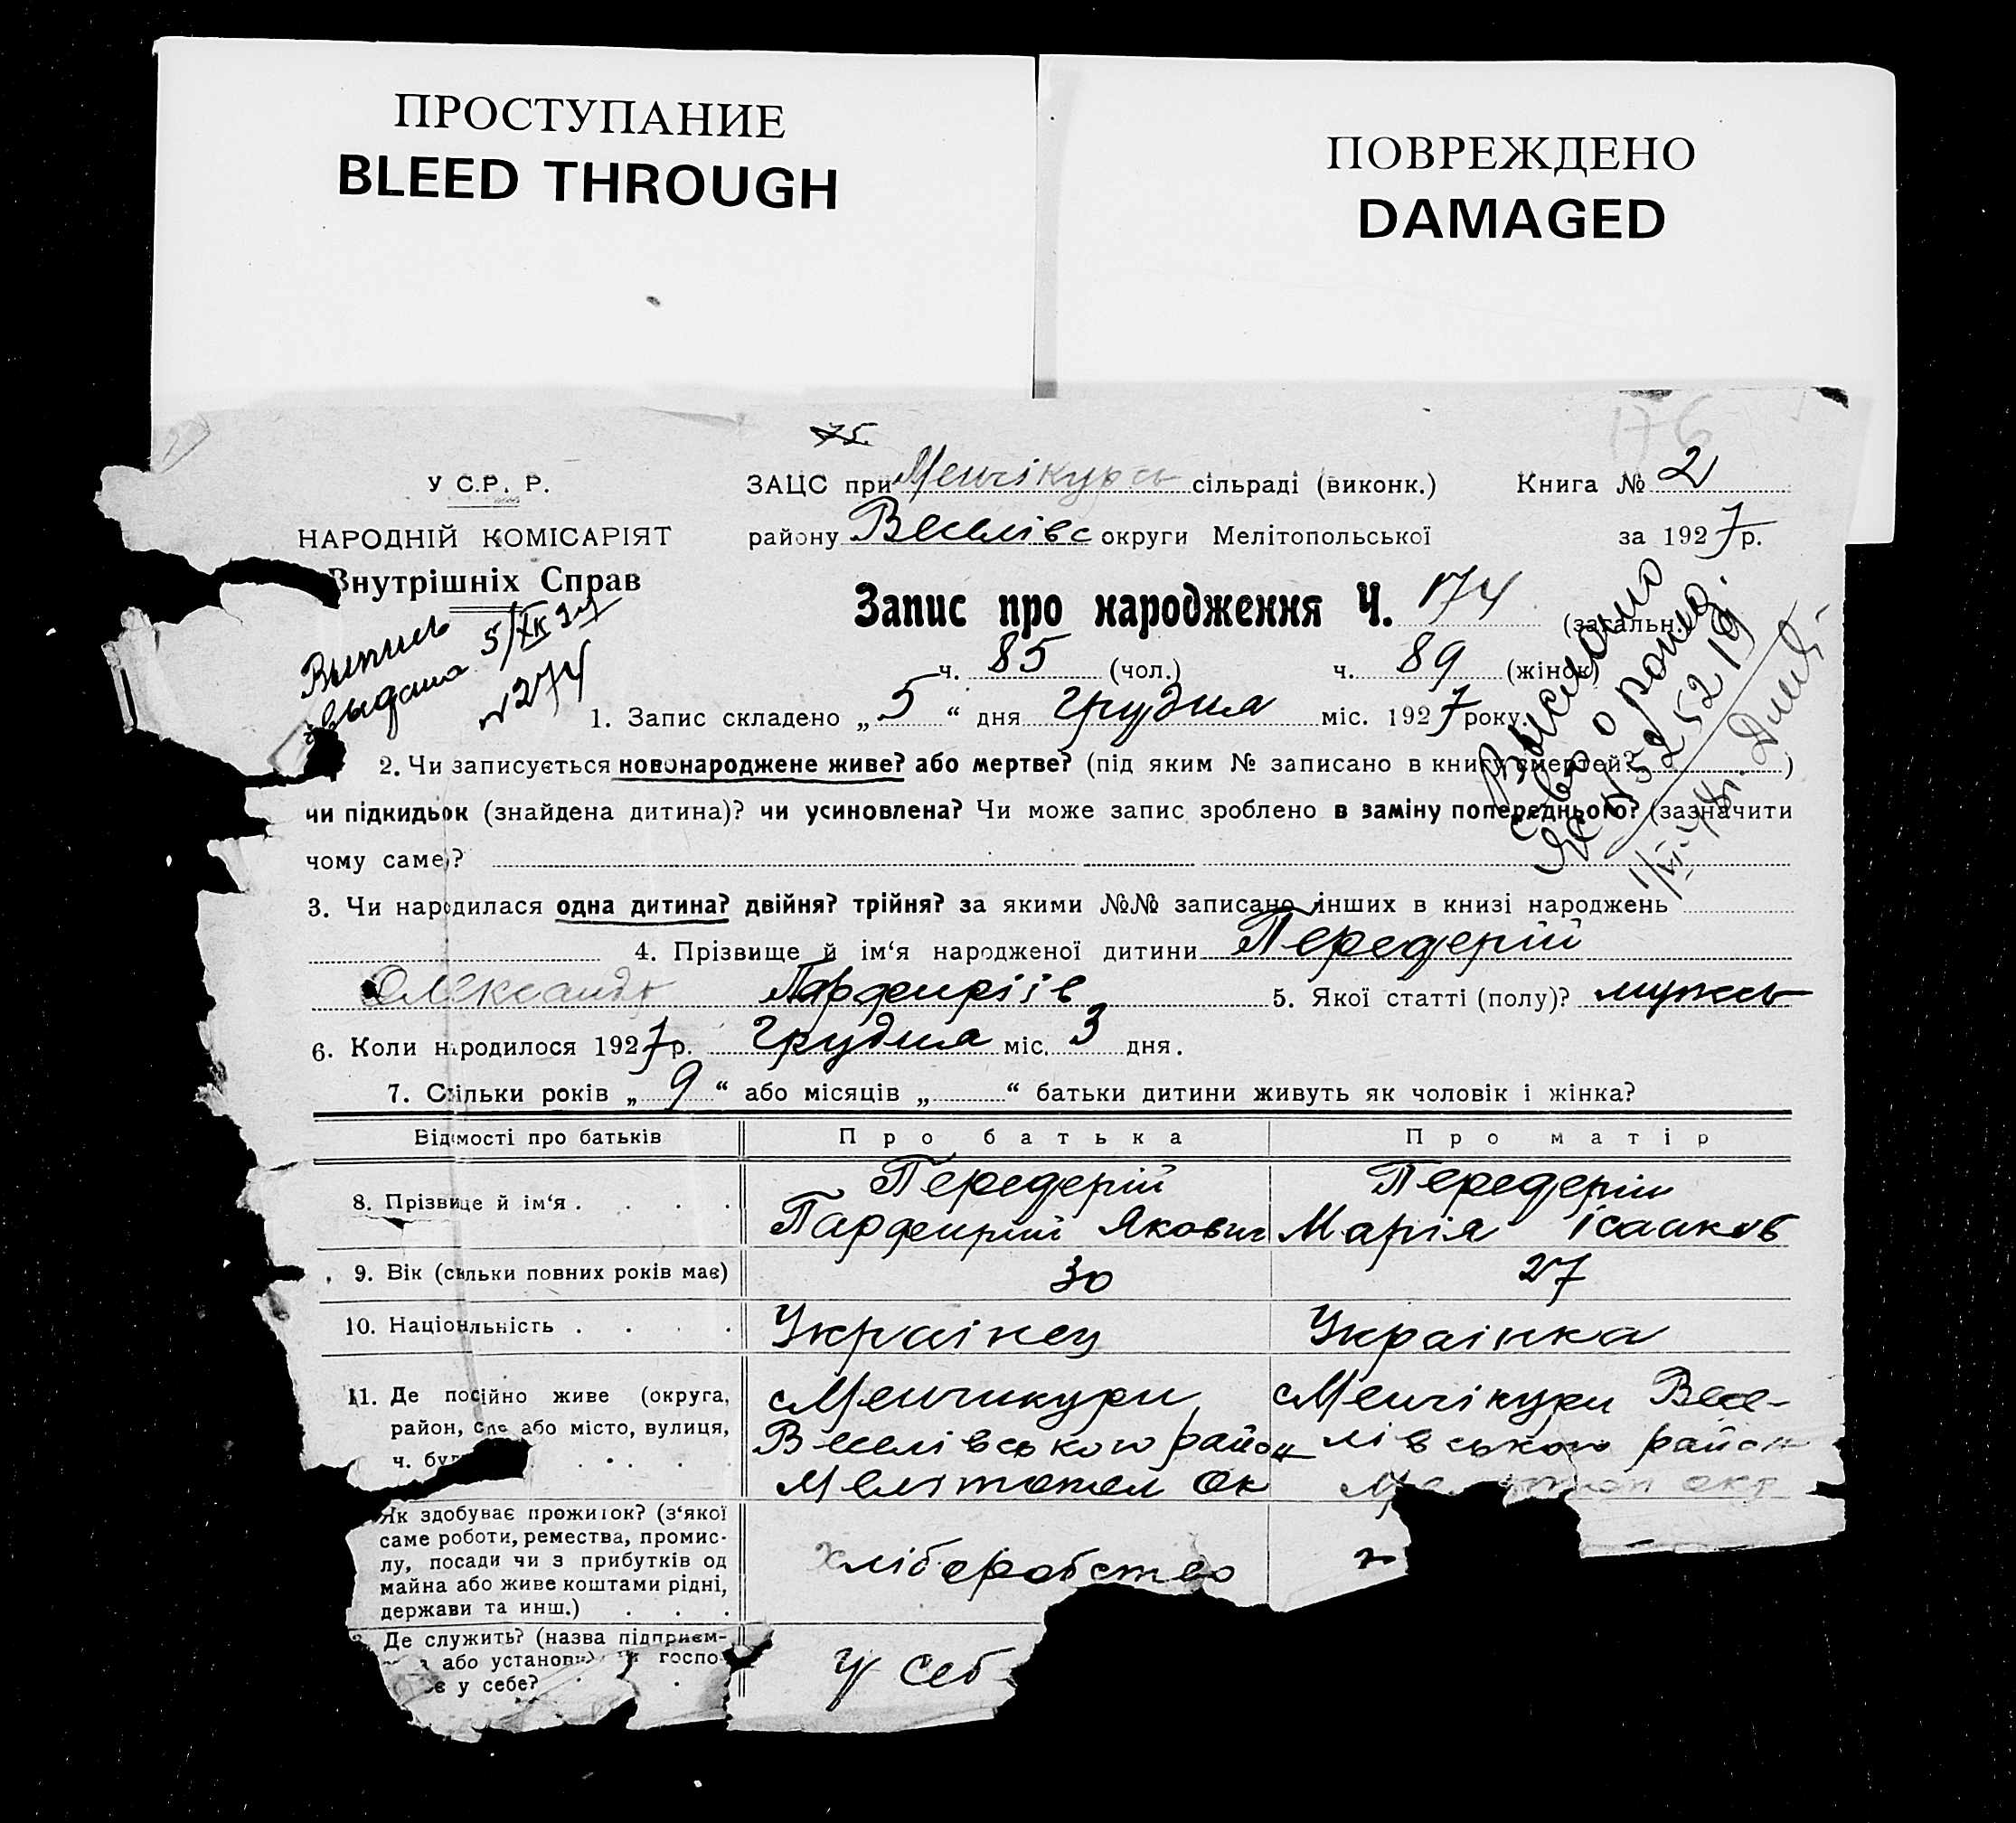 ПРОСТУПАНИЕ
BLEED THROUGH
ПОВРЕЖДЕНО
DAMAGED
176
75.
У С.Р. Р.
НАРОДНІЙ КОМІСАРІЯТ
Внутрішніх Справ
Выпись
выдана 5/XII 37
№ 274
ЗАЦС при Менчікурсь сільраді (виконк.) Книга № 2
району Веселівс округи Мелітопольської за 1927 р.
Запис про народження Ч. 174 (загальн.)
ч. 85 (чол.) ч. 89 (жінок)
Выслано
св-во о рожд.
№ 525219
1. Запис складено „ 5 “ дня грудня міс. 1927 року.
2. Чи записується новонароджене живе? або мертве? (під яким № записано в книгу смертей? )
чи підкидьок (знайдена дитина)? чи усиновлена? Чи може запис зроблено в заміну попереднього? (зазначити
чому саме)?
3. Чи народилася одна дитина? двійня? трійня? за якими №№ записано інших в книзі народжень
4. Прізвище й ім‘я народженої дитини Передерій
Олександр Парфиріїв 5. Якої статті (полу)? мужсь
6. Коли народилося 1927 р. грудня міс. 3 дня.
7. Скільки років „ 9 “ або місяців „ “ батьки дитини живуть як чоловік і жінка?
Відомості про батьків Про батька Про матір
8. Прізвище й ім‘я . . . . Передерій Парфирий Якович Передерій Марія Ісааков
9. Вік (скільки повних років має) 30 27
10. Національність . . . . Украінец Украінка
11. Де постійно живе (округа, Менчикури Менчікури Весе-
район, село або місто, вулиця, Веселівського район лівського район
ч. буд Мелітопол Ок окр
Як здобуває прожиток? (з‘якої
саме роботи, ремества, промис-
лу, посади чи з прибутків од
майна або живе коштами рідні,
держави та инш.) . . . хліборобство
Де служить? (назва підприєм-
або установи) госпо-
є у себе? . . у себ